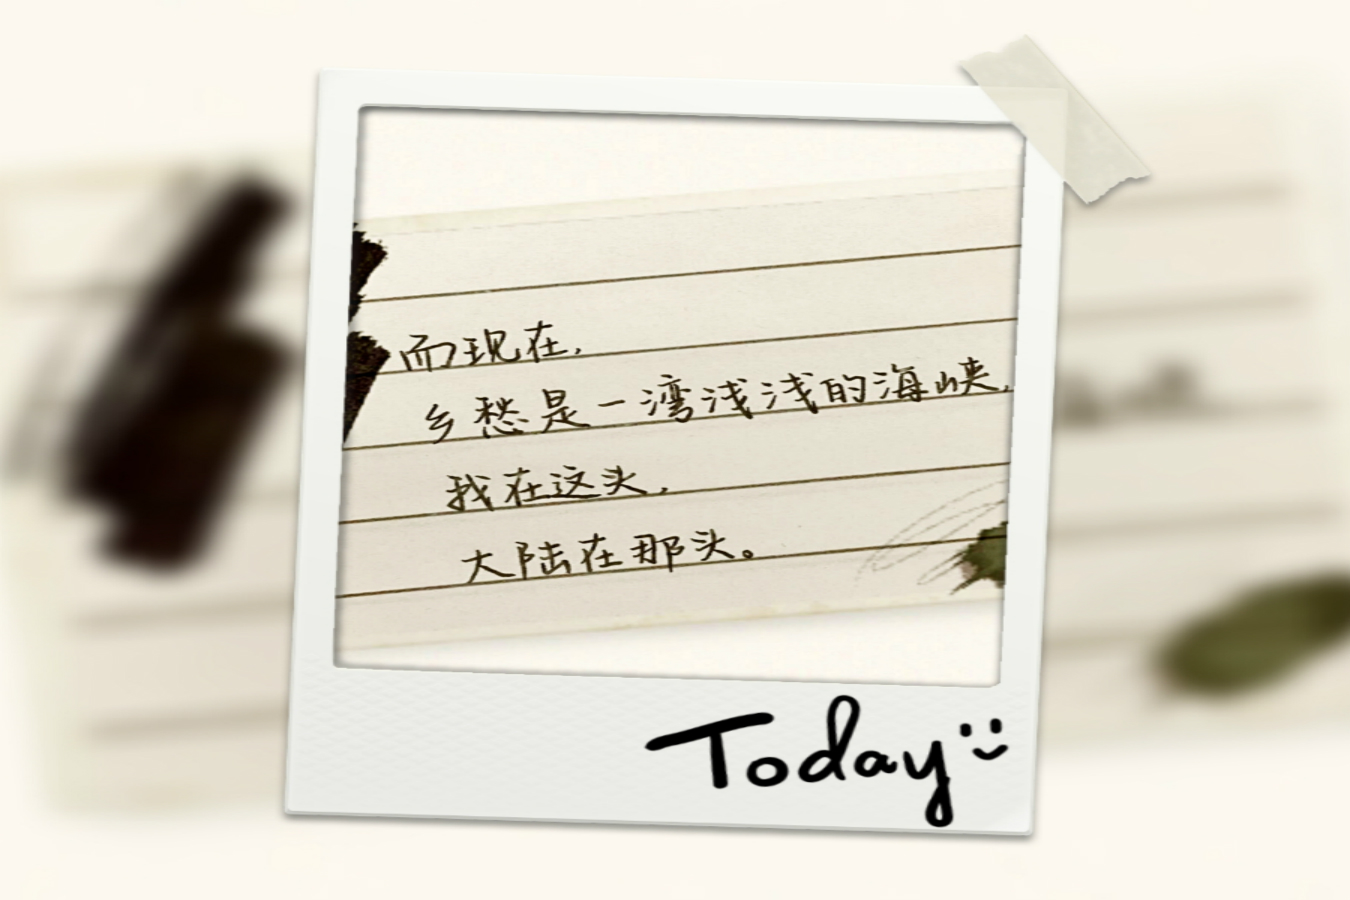 而现在，
乡愁是一湾浅浅的海峡，
我在这头，
大陆在那头。
Today